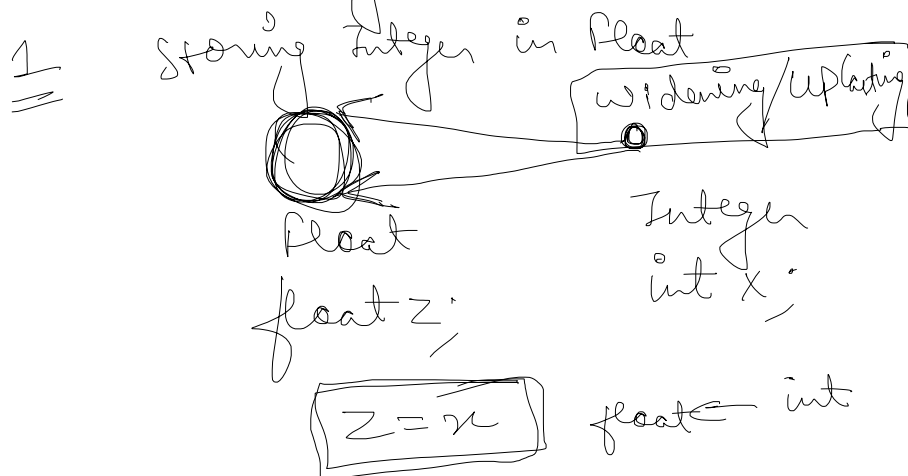 1 Storing Integer in Float
Widening/UpCasting
Float
Integer
float z;
int x;
z = x
float ← int